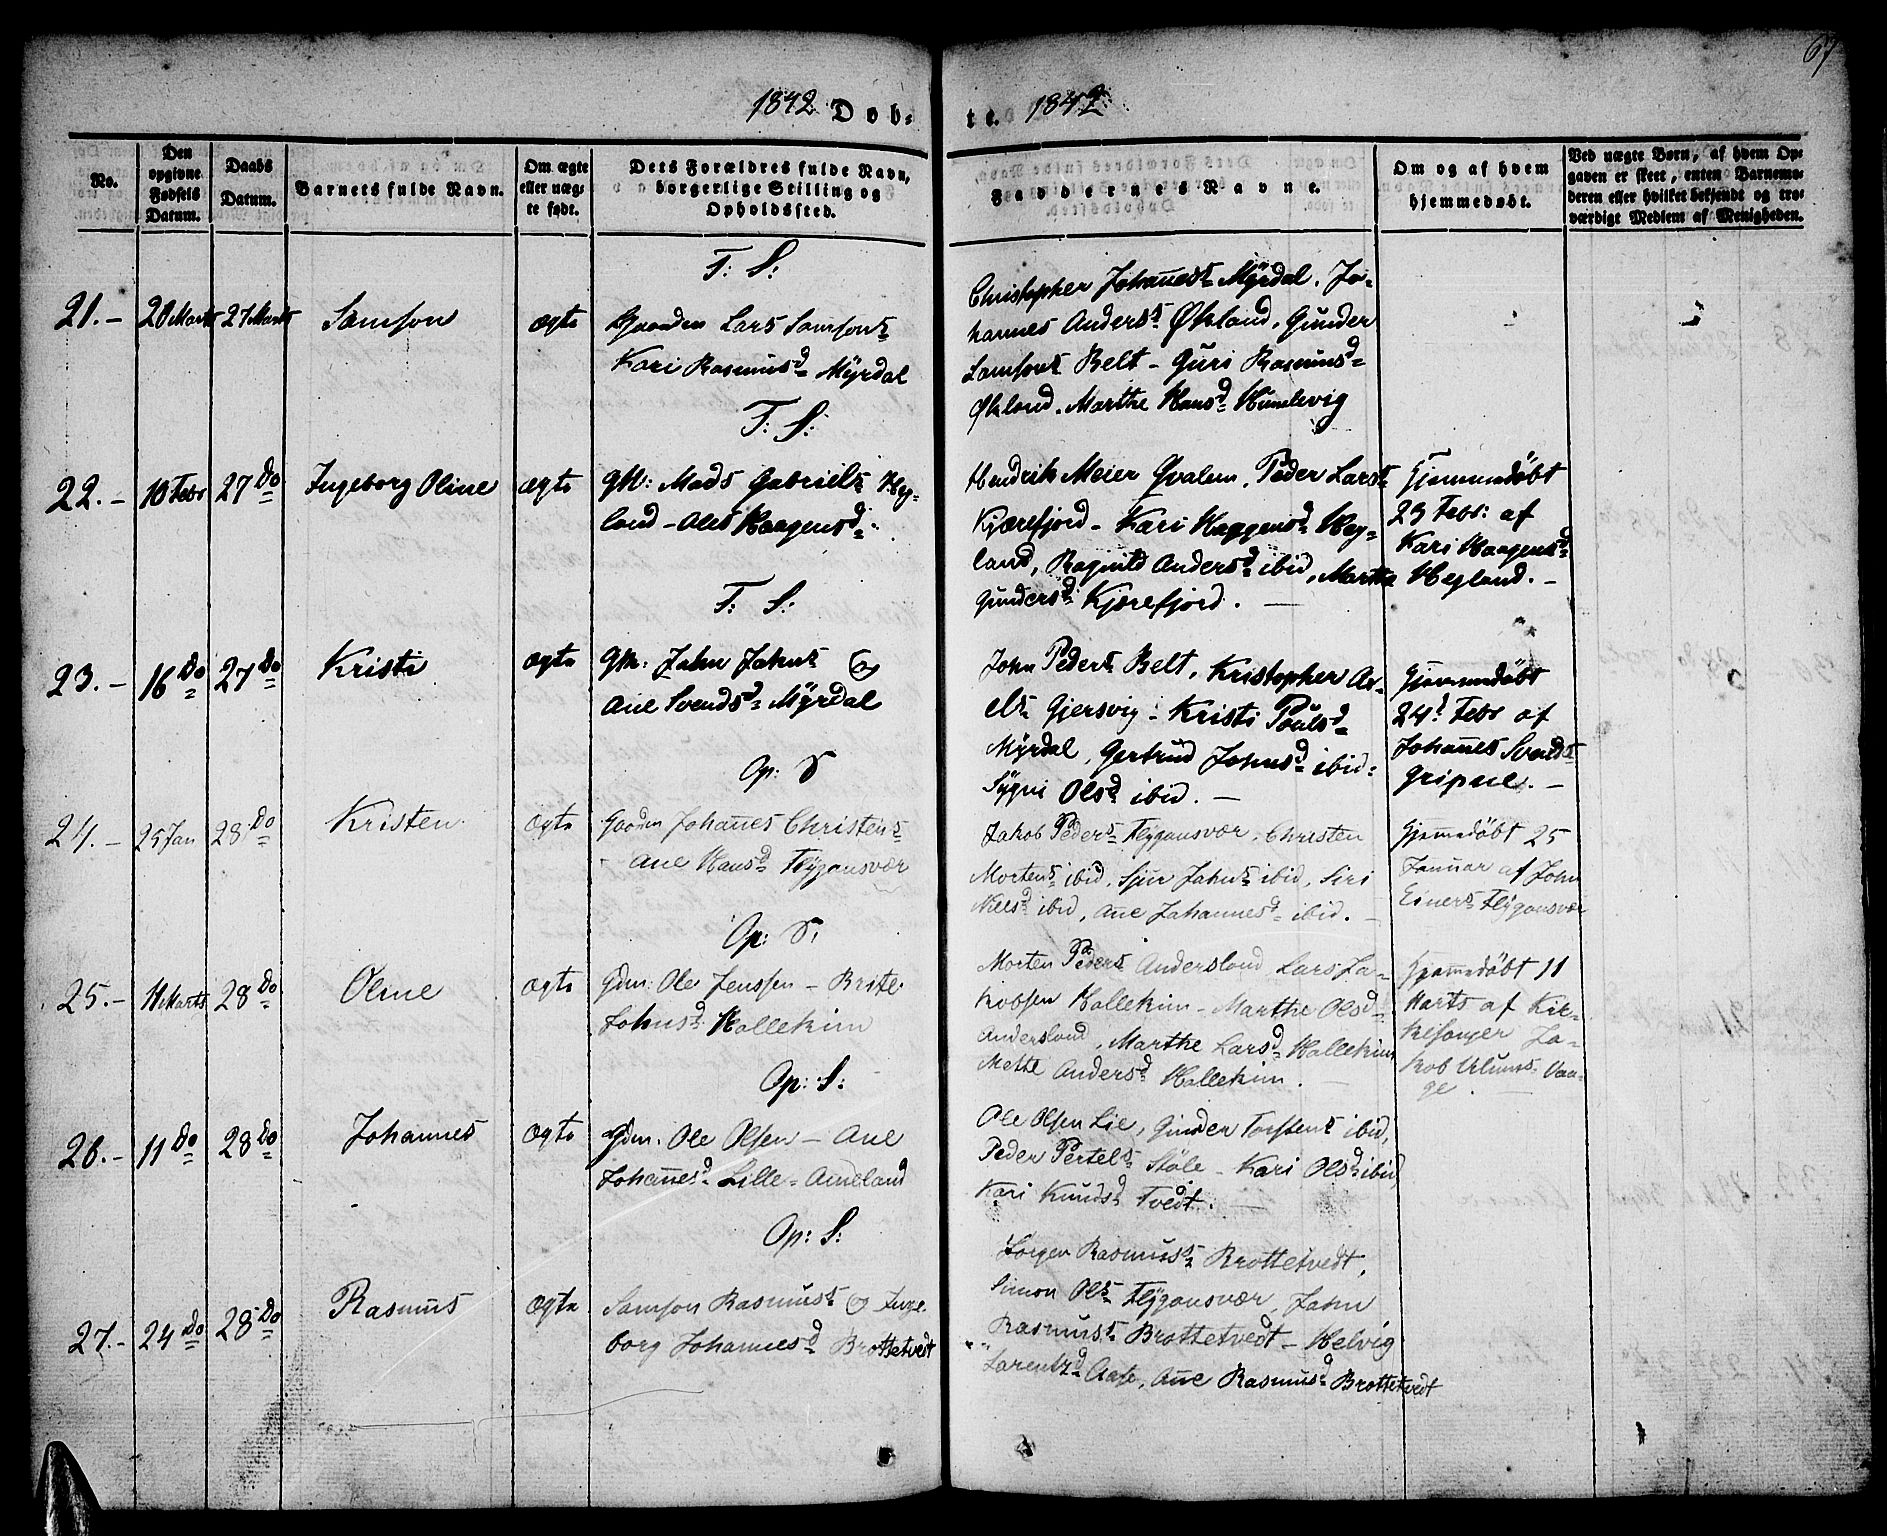 67
1842 Døb-
te. 1842
No.
Den
opgivne
Fødsels
Datum.
Daabs
Datum.
Barnets fulde Navn.
Om ægte
eller uæg-
te født.
Dets Forældres fulde Navn,
borgerlige Stilling og
Opholdssted.
Faddernes Navne.
Om og af hvem
hjemmedøbt.
Ved uægte Børn, af hvem Op-
gaven er skeet, enten Barnemo-
deren eller hvilket bekjendt og tro-
værdigt Medlem af Menigheden.
T: S:
21.- 20 Marts 27 Marts Samson ægte Gaardm Lars Samsons
Kari Rasmusd Myrdal
Christopher Johañess Myrdal. Jo-
hannes Anderss Økland, Gunder
Samsons Belt - Guri Rasmusd
Økland. Marthe Hansd Humlevig
T: S:
22.- 10 Febr 27 Do Ingeborg Oline ægte GM: Mads Gabriels Heg-
land - Ales Haagensd.
Hendrik Meier Qvalem, Peder Lars
Kjærefjord - Kari Haagensd Heg-
land, Ragnild Andersd ibid, Marthe
Gundersd Kjærefjord. -
Hjemmedøbt
23 Febr: af
Kari Haagensd
Hegland. -
T: S:
23.- 16 Do 27 Do Kristi ægte GM: John Johns og
Ane Svendsd Myrdal
John Peders Belt, Kristopher Ax-
els Gjersvig - Kristi Poulsd
Myrdal, Gertrud Johnsd ibid-
Sygni Olsd ibid. -
Hjemmedøbt
24d Febr af
Johañes Svends
Gripne. -
Op: S
24.- 25 Jan 28 Do Kristen ægte Gaardm Johañes Christens
- Ane Hansd Flygansvær
Jakob Peders Flygansvær, Christen
Mortens ibid, Sjur Johns ibid, Siri
Nilsd ibid, Ane Johannesd ibid. -
Hjemedøbt 25
Januar af John
Einers Flygansvær
Op: S:
25.- 11 Marts 28 Do Oline ægte Gdm: Ole Jenssen - Brite
Johnsd Hallekim
Morten Peders Andersland Lars Ja-
kobsen Hallekim - Marthe Olsd
Andersland, Marthe Larsd Hallekim
Mette Andersd Hallekim. -
Hjemedøbt 11
Marts af Kir-
kesanger Ja-
kob Vaa-
ge. -
Op: S:
26.- 11 Do 28 Do Johannes ægte Gdm. Ole Olsen - Ane
Johañesd Lille-Aineland
Ole Olsen Lie, Gunder Torstens ibid,
Peder Pertels Støle - Kari Olsd ibid
Kari Knudsd Tvedt. -
Op: S:
27.- 24 Do 28 Do Rasmus ægte Samson Rasmuss og Inge-
borg Johannesd Brottetvedt
Torger Rasmuss Brottetvedt,
Simon Ols Flygansvær, John
Rasmuss Brottetvedt - Helvig
Larentzd Aase, Ane Rasmusd Brottetvedt